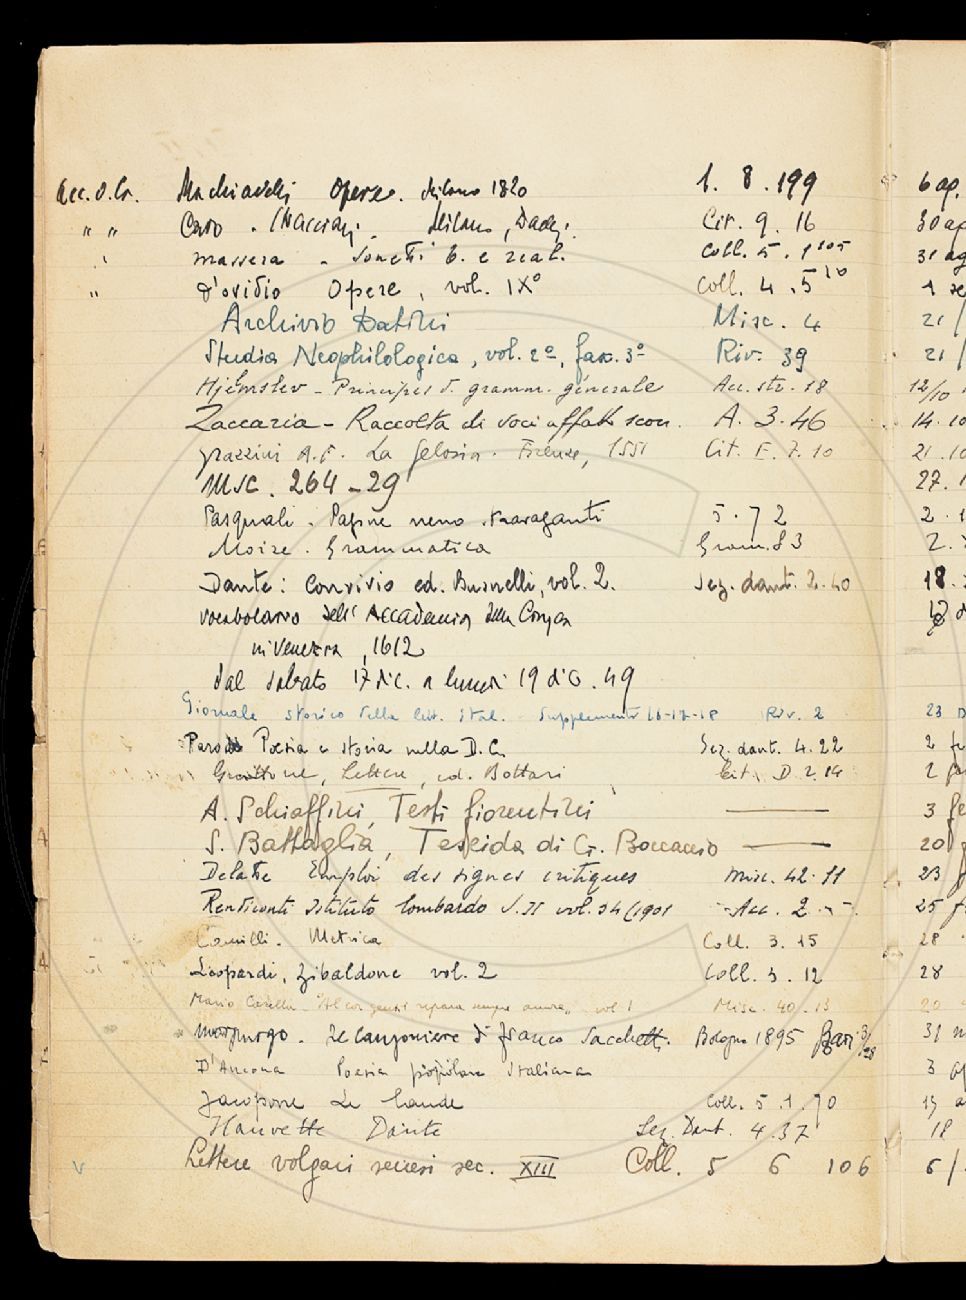 Acc. d. Cr. Machiavelli Opere. Milano 1820 1. 8. 199 6 ap.
" " Caro . Milano, 9. 16 30 ap
massera - Sonetti b. e real. Coll. 5. 1 105 31 ag
" D'Ovidio Opere, vol. IXº Coll. 4. 5 10 1 se
Archivio Datini Misc. 4 21 /
Studia Neophilologica, vol. 2º, fasc. 3º Riv. 39 21 /
Hjelmslev - Principes d. gramm. générale Acc. str. 18 12/10
Zaccaria - Raccolta di voci affatto scon. A. 3. 46 14. 10
grazzini A.F. La gelosia. Firenze, 1551 Cit. E. 7. 10 21. 10
MSC. 264-29 27. 1
Pasquali. Pagine meno stravaganti 5. 72 2. 1
Moise. Grammatica Gram. 83 2.
Dante: Convivio ed. Busnelli, vol. 2. Sez. dant. 2. 40 18.
vocabolario dell'Accademia della Crusca
in Venezia, 1612
Dal sabato 17 dic. a lunedì 19 dic. 49
Giornale storico della lett. ital. - Supplemento 16-17-18 Riv. 2 23 D
Parodi Poesia e storia nella D.C. Sez. dant. 4. 22 2 fe
Guittone, Lettere, ed. Bottari Cit. D. 2. 14 2 fe
A. Schiaffini, Testi fiorentini 3 fe
S. Battaglia, Teseida di G. Boccaccio 20 f
Delatte Emploi des signes critiques Misc. 42. 11 23 f
Rendiconti Istituto lombardo S. II vol. 34 (1901 Acc. 2 25 f
Camilli. Metrica Coll. 3. 15 28
Leopardi, Zibaldone vol. 2 Coll. 3. 12 28
Mario Casella "Al cor gentil repara sempre amore" vol 1 Misc. 40. 13 20
Morpurgo. Il canzoniere di franco Sacchetti. Bologna 1895 3/28 31 m
D'Ancona Poesia popolare Italiana 3 ap
Jacopone Le laude Coll. 5. 1. 70 15 a
Hauvette Dante Sez. Dant. 4. 37 18
v Lettere volgari senesi sec. XIII Coll. 5 6 106 6 /